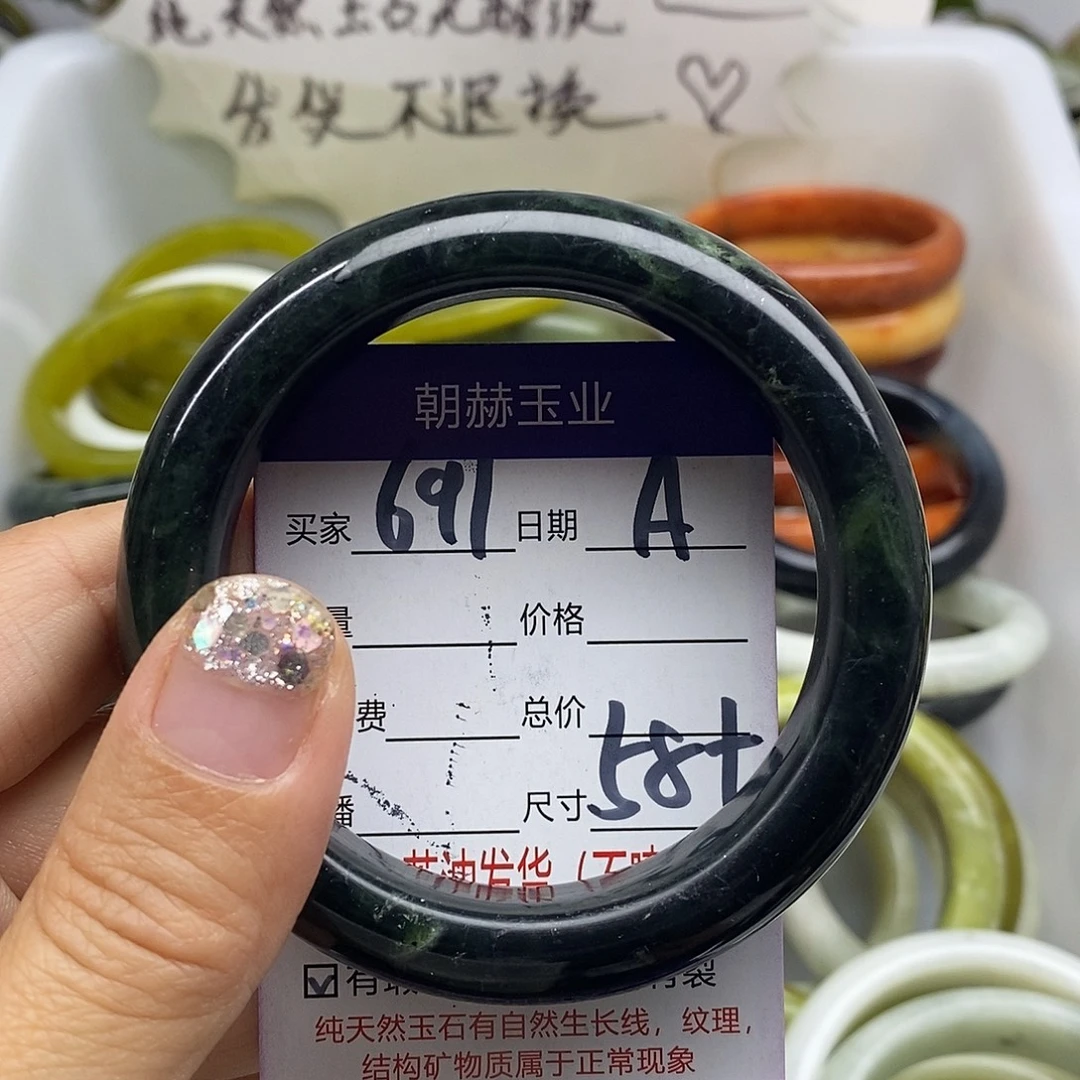 纯天然玉石无醛液
售货不退换
朝赫玉业
买家 691 日期 A
量 价格
费 总价
播 尺寸 58+
发货
有瑕
裂
纯天然玉石有自然生长线，纹理，
结构矿物质属于正常现象